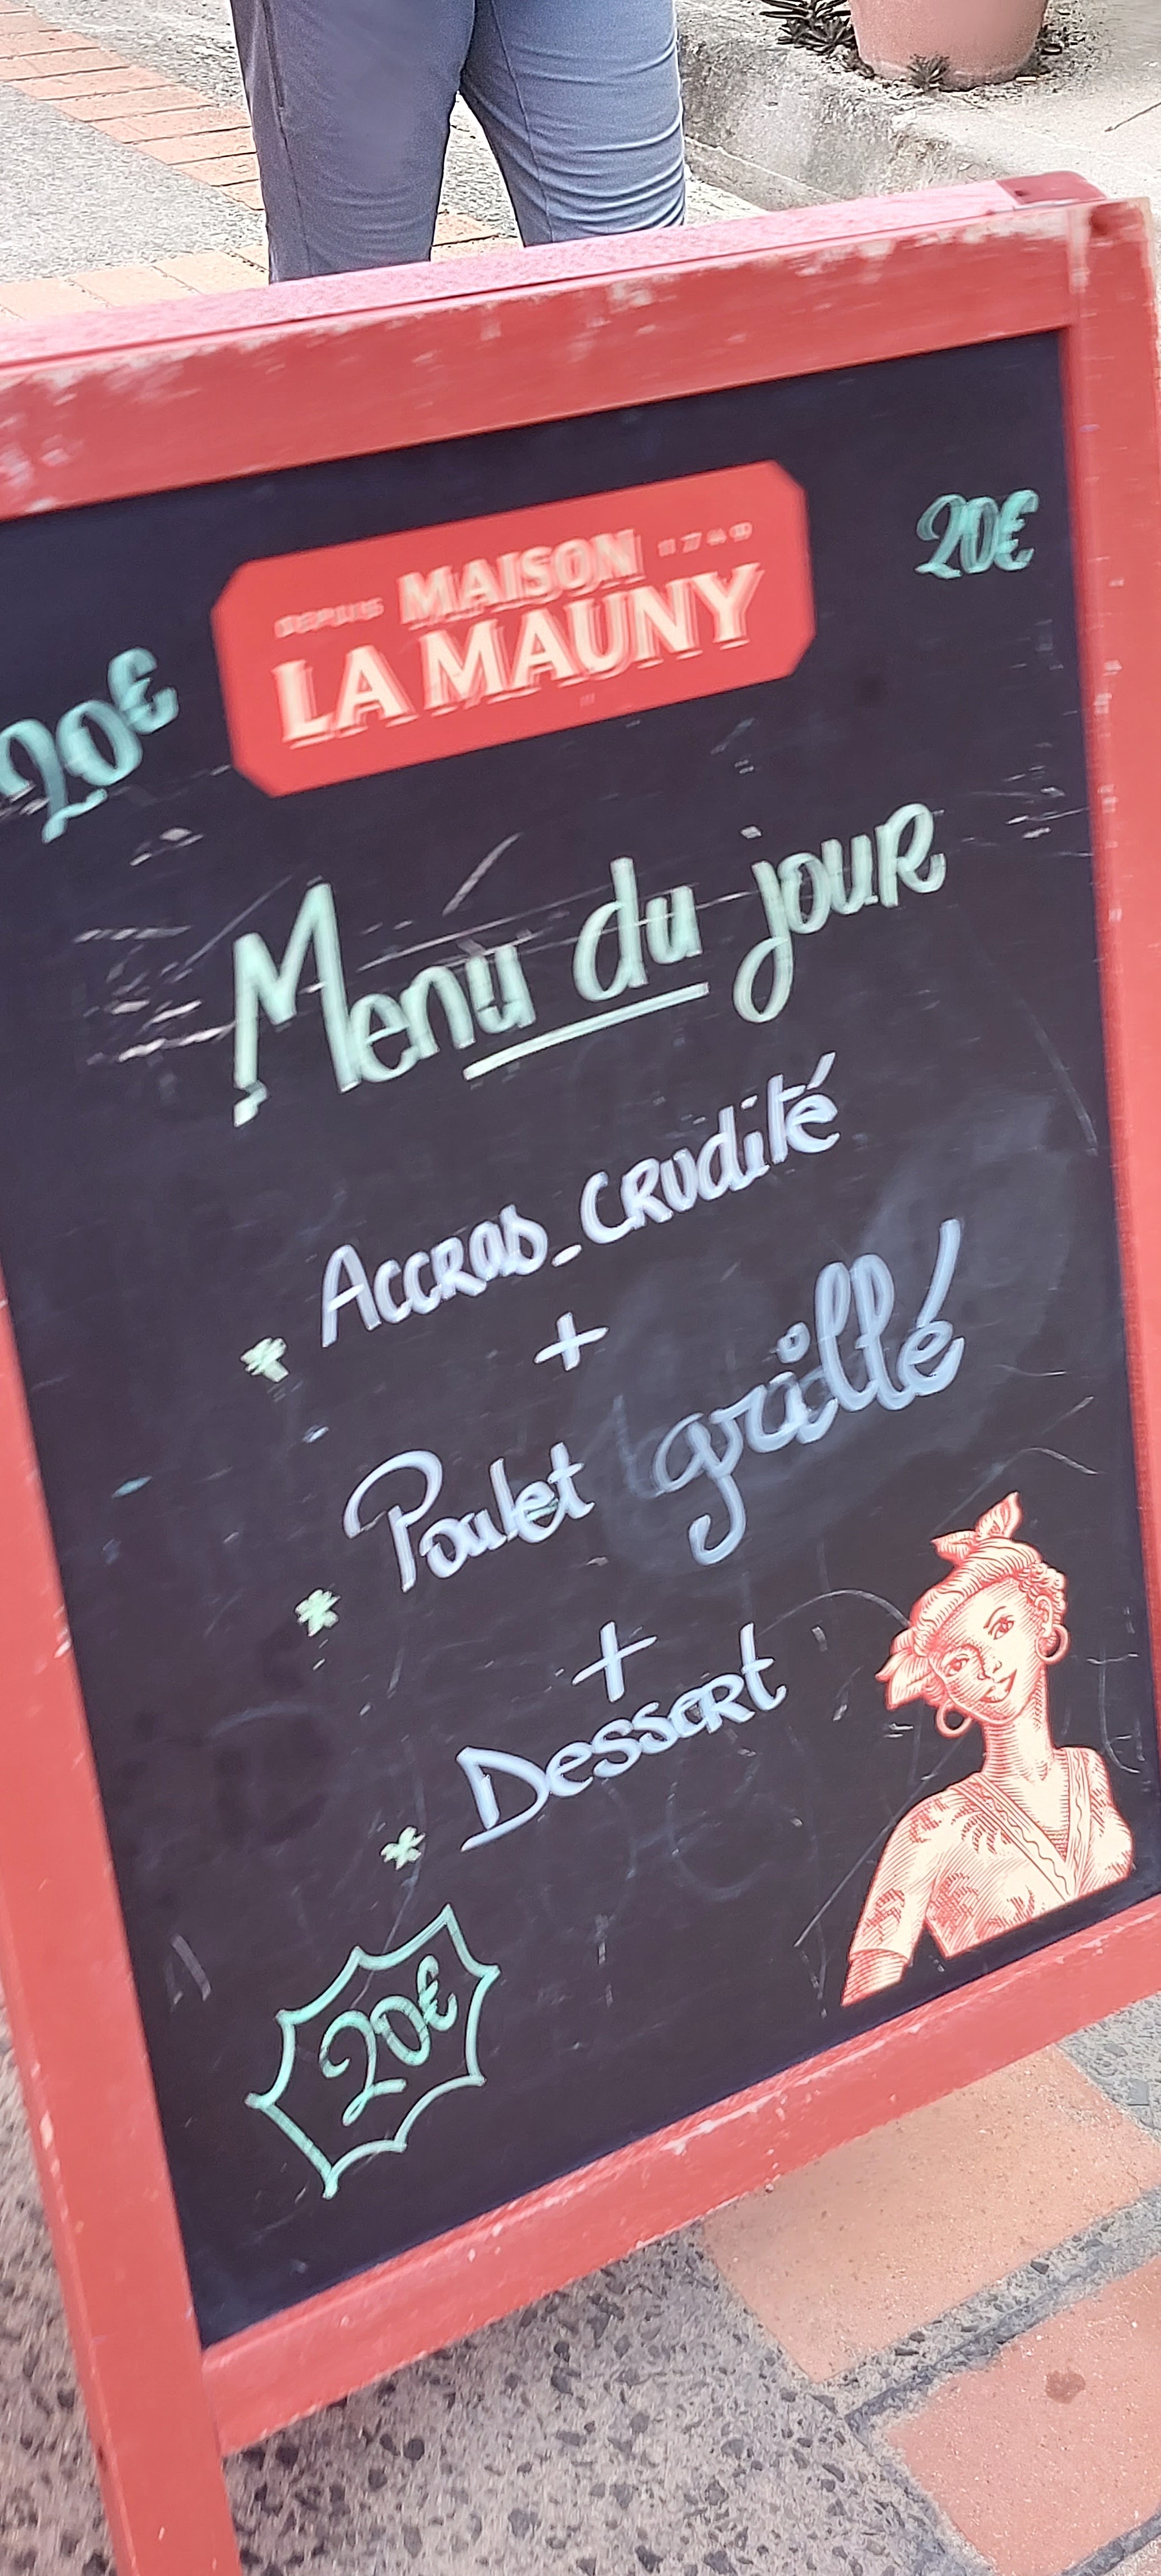 DEPUIS MAISON 1749
LA MAUNY
20€
20€
Menu du jour
* Accras_CRudité
+
* Poulet grillé
+
* Dessert
20€